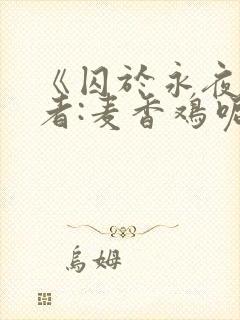 《囚於永夜
者:麦香鸡呢
烏姆